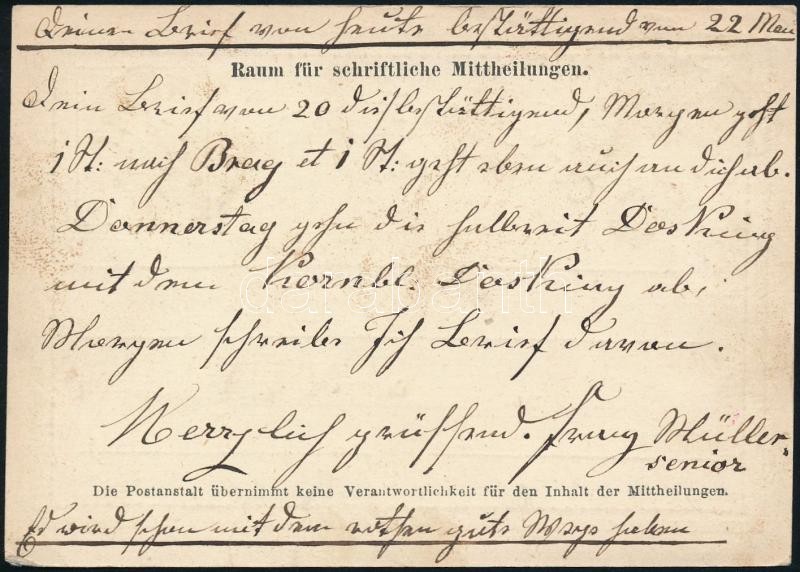 Deinen Brief von heute bestättigend vom 22 May
Raum für schriftliche Mittheilungen.
Dein Brief von 20 dis bestättigend, Morgen geht
1 St: nach Brag et 1 St: geht eben auch an dich ab.
Donnerstag gehn die halbreit DosKing
mit dem Kornbl. DosKing ab,
Morgen schreibe Ich Brief davon.
Herzlich grüssend. Franz Müller
senior
Die Postanstalt übernimmt keine Verantwortlichkeit für den Inhalt der Mittheilungen.
Es wird schon mit dem rothen gute Wege haben
darabanth